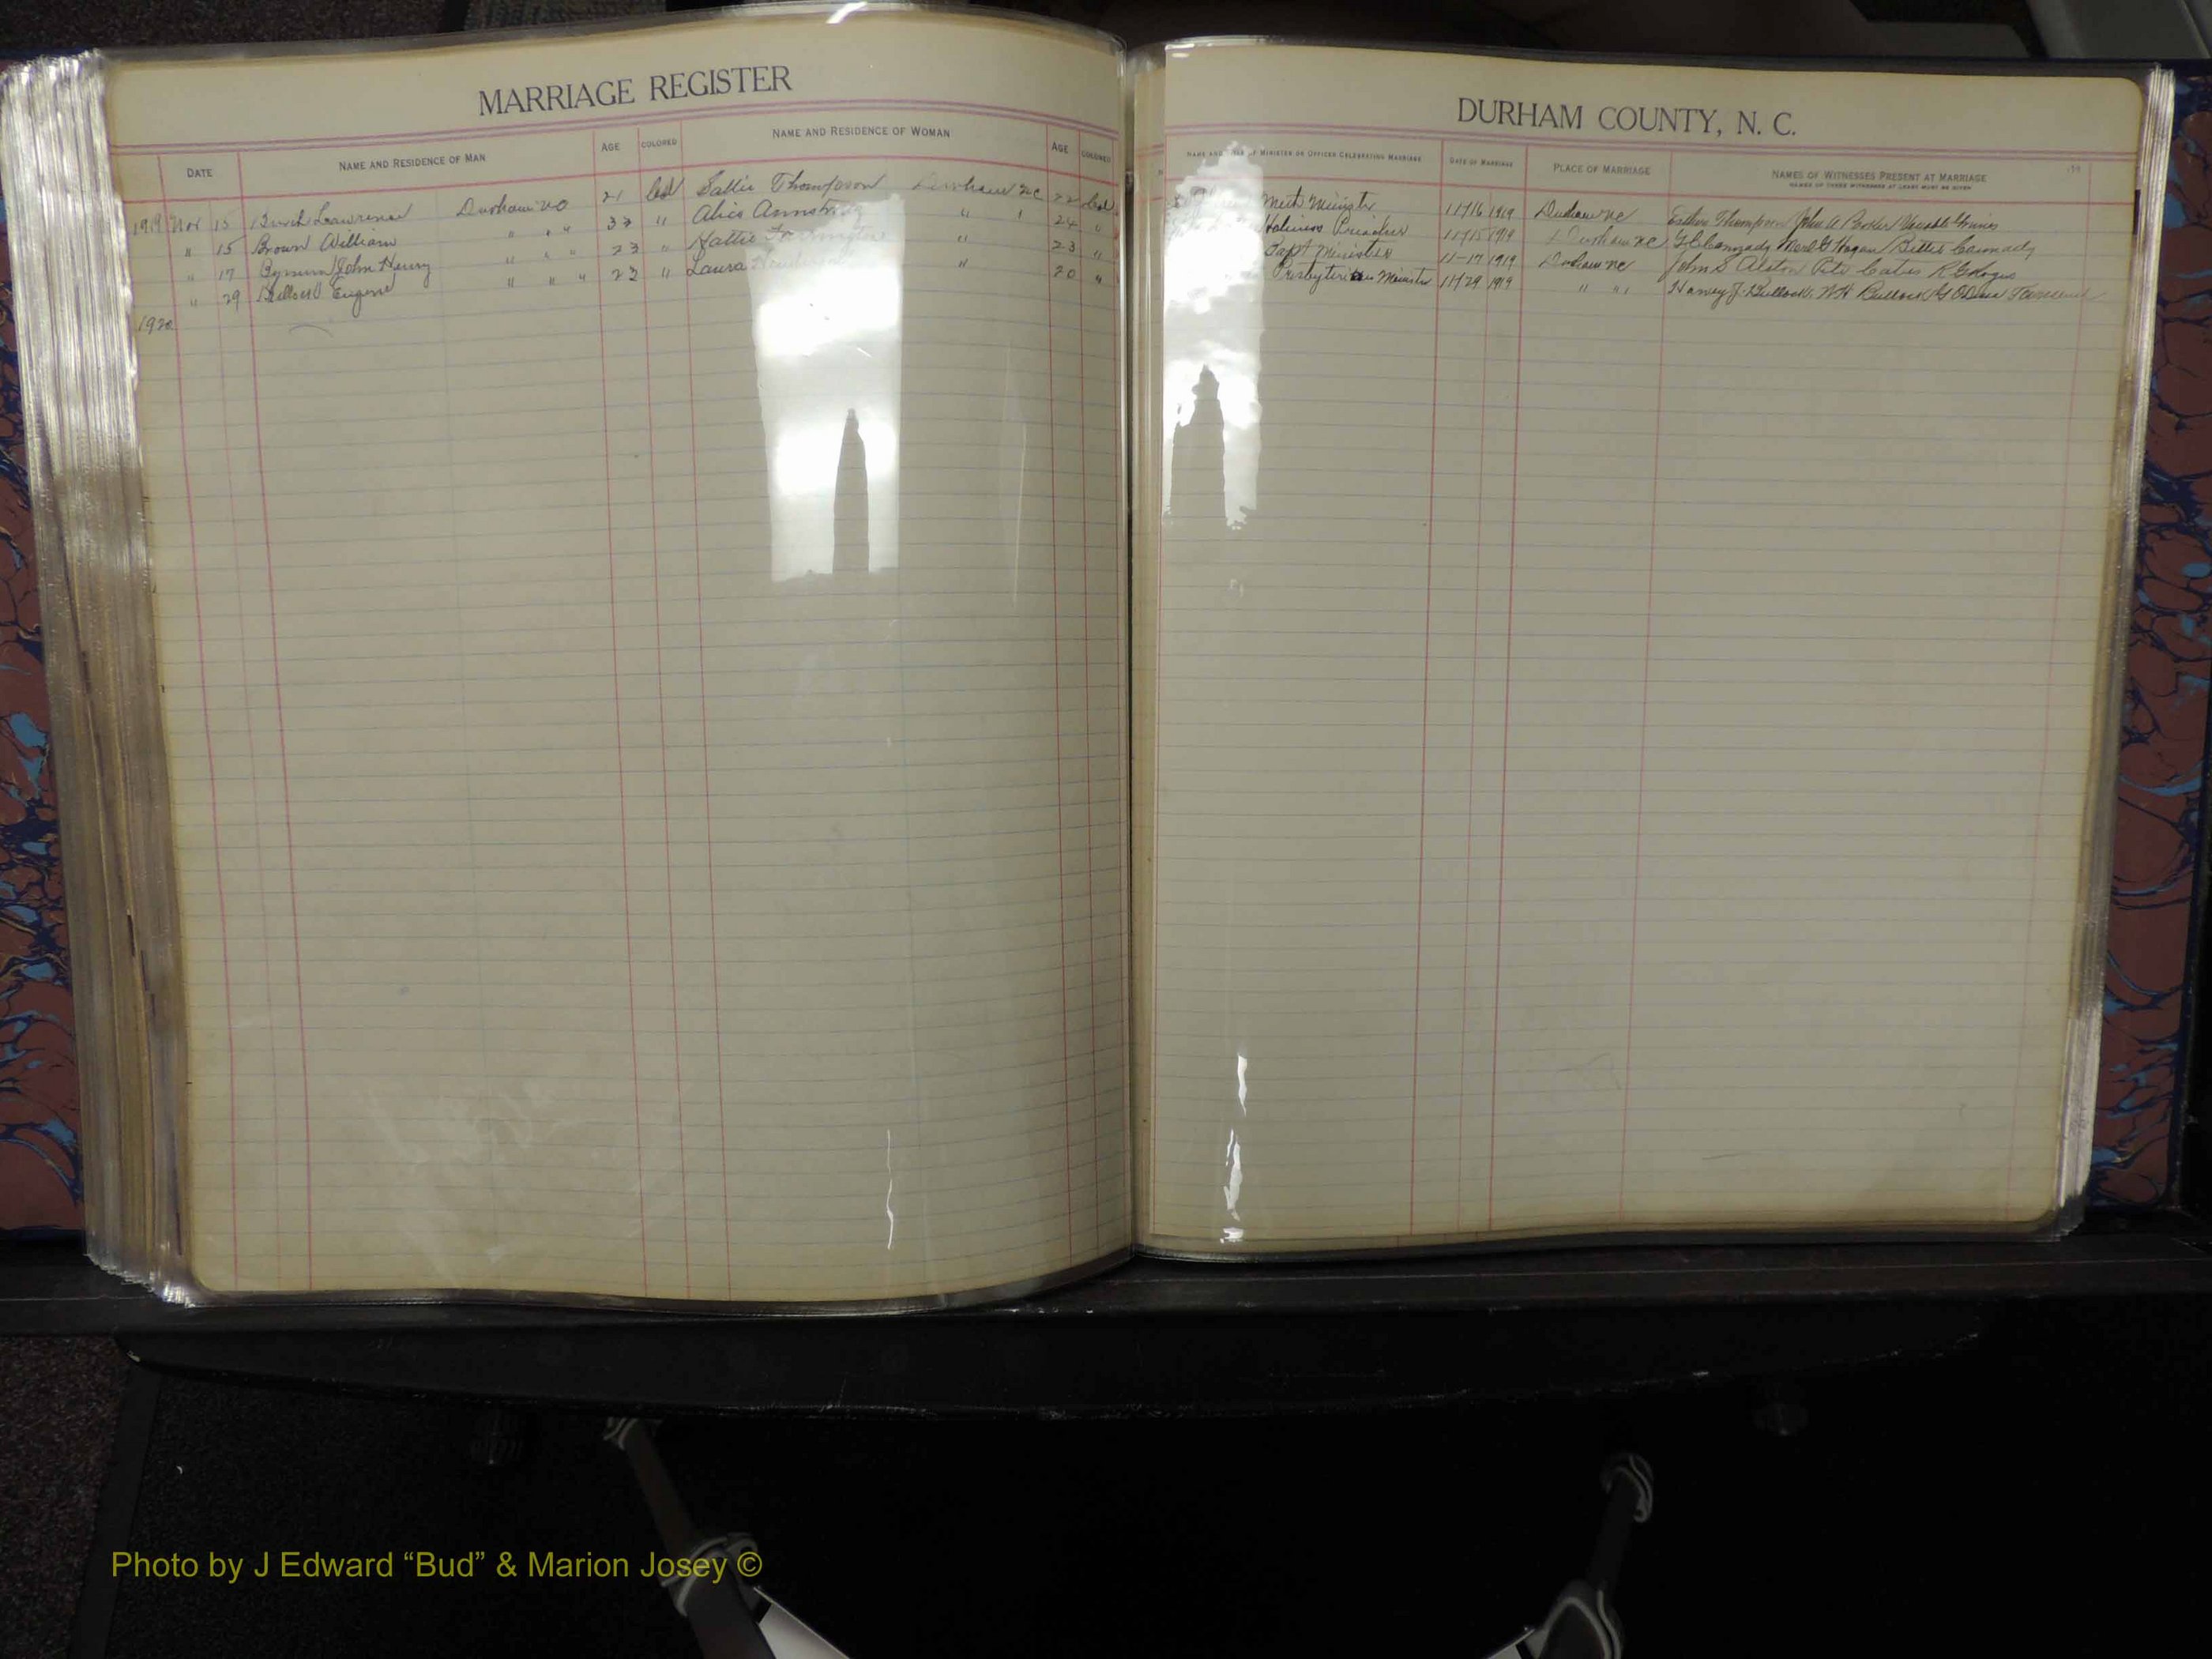 MARRIAGE REGISTER
DATE NAME AND RESIDENCE OF MAN AGE COLORED NAME AND RESIDENCE OF WOMAN AGE COLORED
1919 Nov 15 Burch Lawrence Durham NC 21 Col Sallie Thompson Durham NC 22 Col
" 15 Brown William " " " 33 " Alice Armstrong " " 24 "
" 17 Bynum John Henry " " " 23 " Hattie " 23 "
" 29 Bullock Eugene " " " 23 " Laura " 20 "
1920
DURHAM COUNTY, N. C.
NAME AND OF MINISTER OR OFFICER CELEBRATING MARRIAGE DATE OF MARRIAGE PLACE OF MARRIAGE NAMES OF WITNESSES PRESENT AT MARRIAGE
NAMES OF THREE WITNESSES AT LEAST MUST BE GIVEN
Meth Minister 11/16 1919 Durham NC Esther Thompson John A
Holiness Preacher 11/15 1919 Durham NC
Bapt Minister 11-17 1919 Durham NC John S Alston Pete Cates
Presbyterian Minister 11/29 1919 " " " Bullock W H Bullock
Photo by J Edward “Bud” & Marion Josey ©